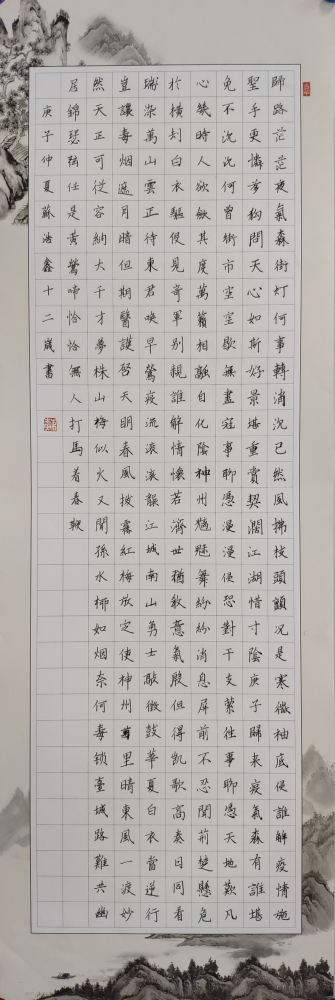 歸路茫茫夜氣森街灯何事轉消沉已然風拂枝頭顫况是寒微袖底侵誰解疫情施
聖手更憐夢問天心如斯好景堪重賞契闊江湖惜寸陰庚子歸来疫氣森有誰堪
免不沉沉何曾街市空空歇無盡寃事聊憑漫漫侵恐對干支縈往事聊憑天地歎凡
心幾時人欲斂其度萬籟相融自化陰神州魑魅舞紛紛消息屏前不忍聞荆楚懸危
於橫白衣驅使見奇軍别親誰解情懷若濟世猶教意氣殷但得凱歌高奏日同看
瑞染萬山雲正待東君喚早鶯疫流滚滚江城南山勇士敲微鼓華夏白衣當逆行
豈讓毒烟遮月暗但期醫護啓天明春風披露紅梅放定使神州萬里晴東風一渡妙
然天正可從容納大千才夢株山梅似火又聞孫水柳如烟奈何毒锁臺城路難共幽
居錦瑟弦任是黄鶯啼恰恰無人打馬着春鞭
庚子仲夏蘇浩鑫十二歲書